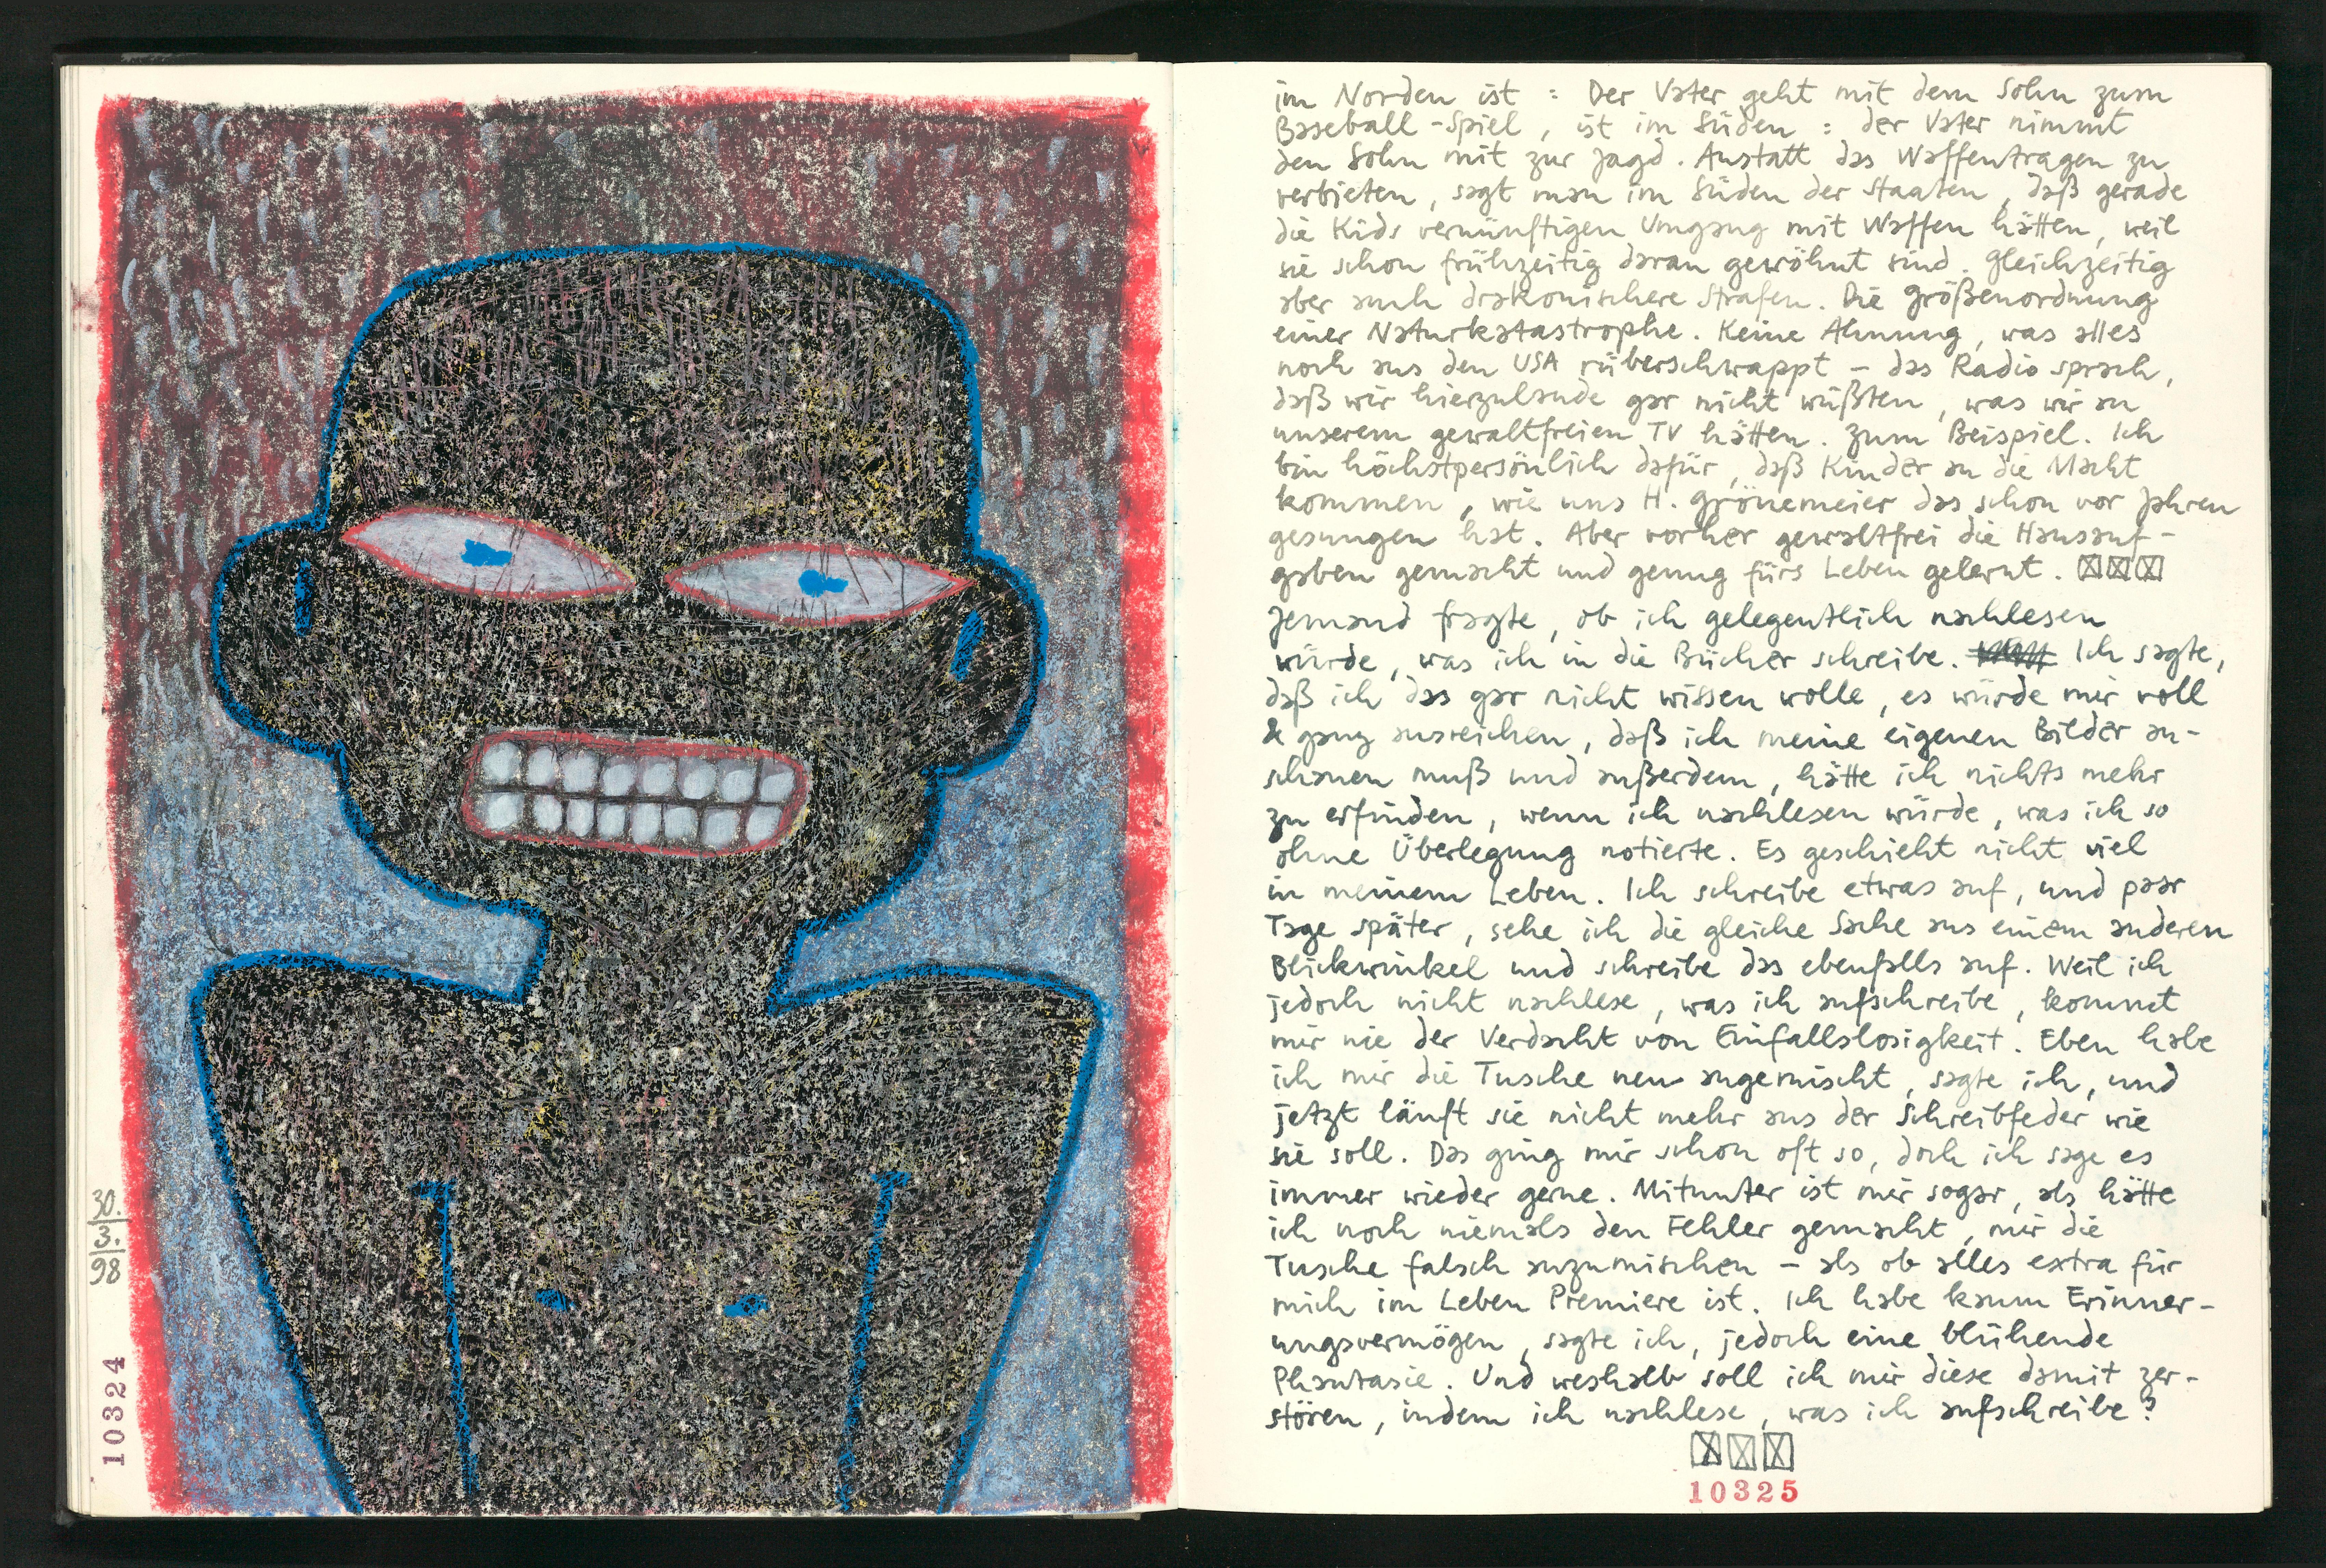 30.
3.
98
10324
im Norden ist : Der Vater geht mit dem Sohn zum
Baseball-Spiel, ist im Süden : der Vater nimmt
den Sohn mit zur Jagd. Anstatt das Waffentragen zu
verbieten, sagt man im Süden der Staaten, daß gerade
die Kids vernünftigen Umgang mit Waffen hätten, weil
sie schon frühzeitig daran gewöhnt sind. Gleichzeitig
aber auch drakonischere Strafen. Die Größenordnung
einer Naturkatastrophe. Keine Ahnung, was alles
noch aus den USA rüberschwappt – das Radio sprach,
daß wir hierzulande gar nicht wüßten, was wir an
unserem gewaltfreien TV hätten. Zum Beispiel. Ich
bin höchstpersönlich dafür, daß Kinder an die Macht
kommen, wie uns H. Grönemeier das schon vor Jahren
gesungen hat. Aber vorher gewaltfrei die Hausauf-
gaben gemacht und genug fürs Leben gelernt.
Jemand fragte, ob ich gelegentlich nachlesen
würde, was ich in die Bücher schreibe. Ich sagte,
daß ich das gar nicht wissen wolle, es würde mir voll
& ganz ausreichen, daß ich meine eigenen Bilder an-
schauen muß und außerdem, hätte ich nichts mehr
zu erfinden, wenn ich nachlesen würde, was ich so
ohne Überlegung notierte. Es geschieht nicht viel
in meinem Leben. Ich schreibe etwas auf, und paar
Tage später, sehe ich die gleiche Sache aus einem anderen
Blickwinkel und schreibe das ebenfalls auf. Weil ich
jedoch nicht nachlese, was ich aufschreibe, kommt
mir nie der Verdacht von Einfallslosigkeit. Eben habe
ich mir die Tusche neu angemischt, sagte ich, und
jetzt läuft sie nicht mehr aus der Schreibfeder wie
sie soll. Das ging mir schon oft so, doch ich sage es
immer wieder gerne. Mitunter ist mir sogar, als hätte
ich noch niemals den Fehler gemacht, mir die
Tusche falsch anzumischen – als ob alles extra für
mich im Leben Premiere ist. Ich habe kaum Erinner-
ungsvermögen, sagte ich, jedoch eine blühende
Phantasie. Und weshalb soll ich mir diese damit zer-
stören, indem ich nachlese, was ich aufschreibe?
10325